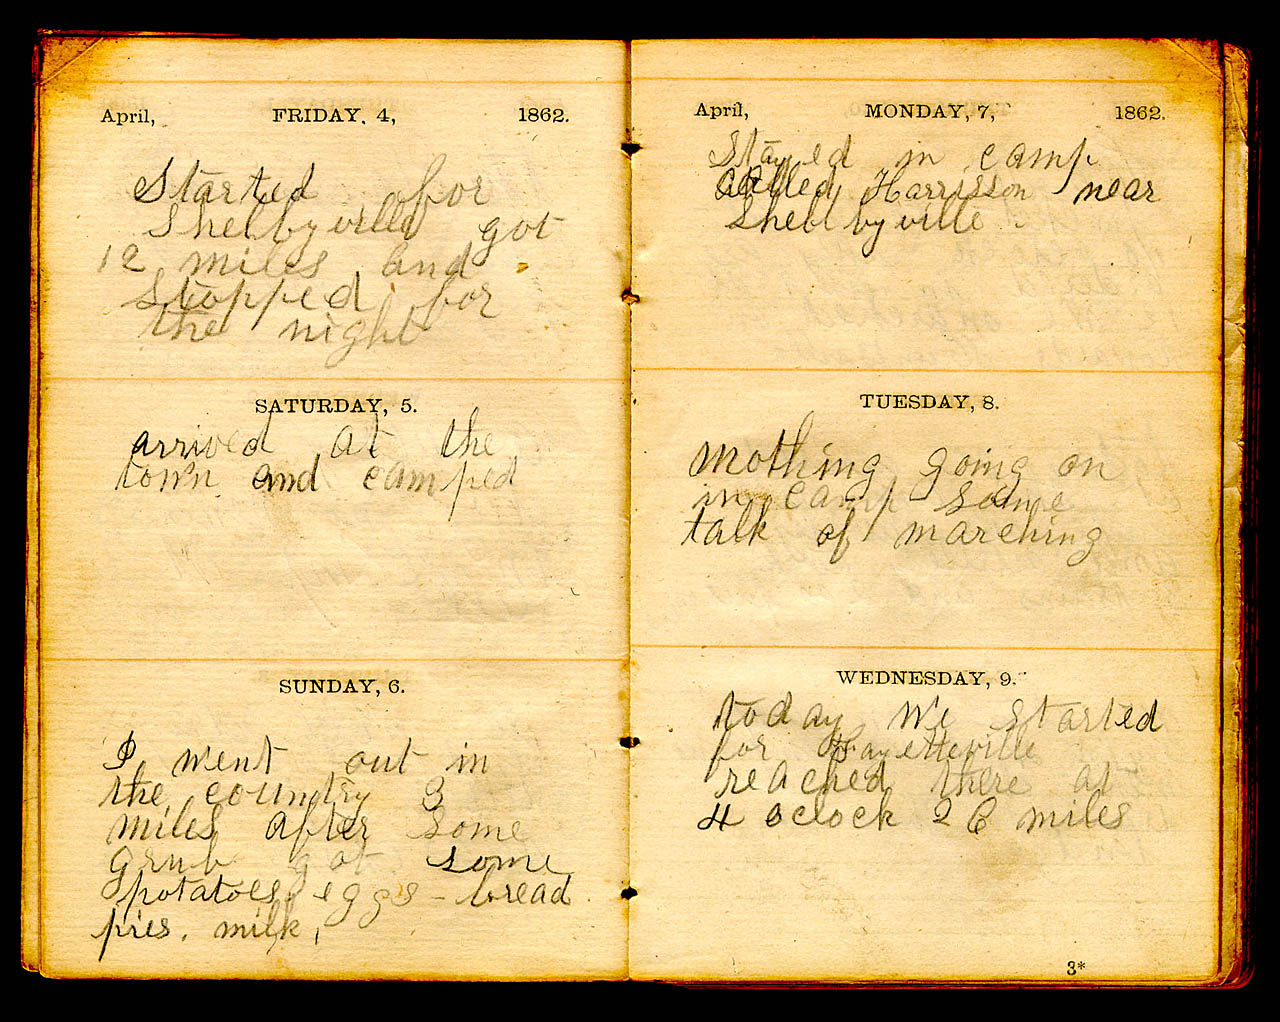 April, FRIDAY, 4, 1862.
Started for
Shelbyville got
12 miles and
stopped for
the night
SATURDAY, 5.
arrived at the
town and camped
SUNDAY, 6.
I went out in
the country 3
miles after some
grub got some
potatoes, eggs - bread
pies. milk,
April, MONDAY, 7, 1862.
Stayed in camp
called Harrisson near
Shebl byville
TUESDAY, 8.
nothing going on
in camp some
talk of marching
WEDNESDAY, 9.
today we started
for Fayetteville
reached there at
4 oclock 26 miles
3*